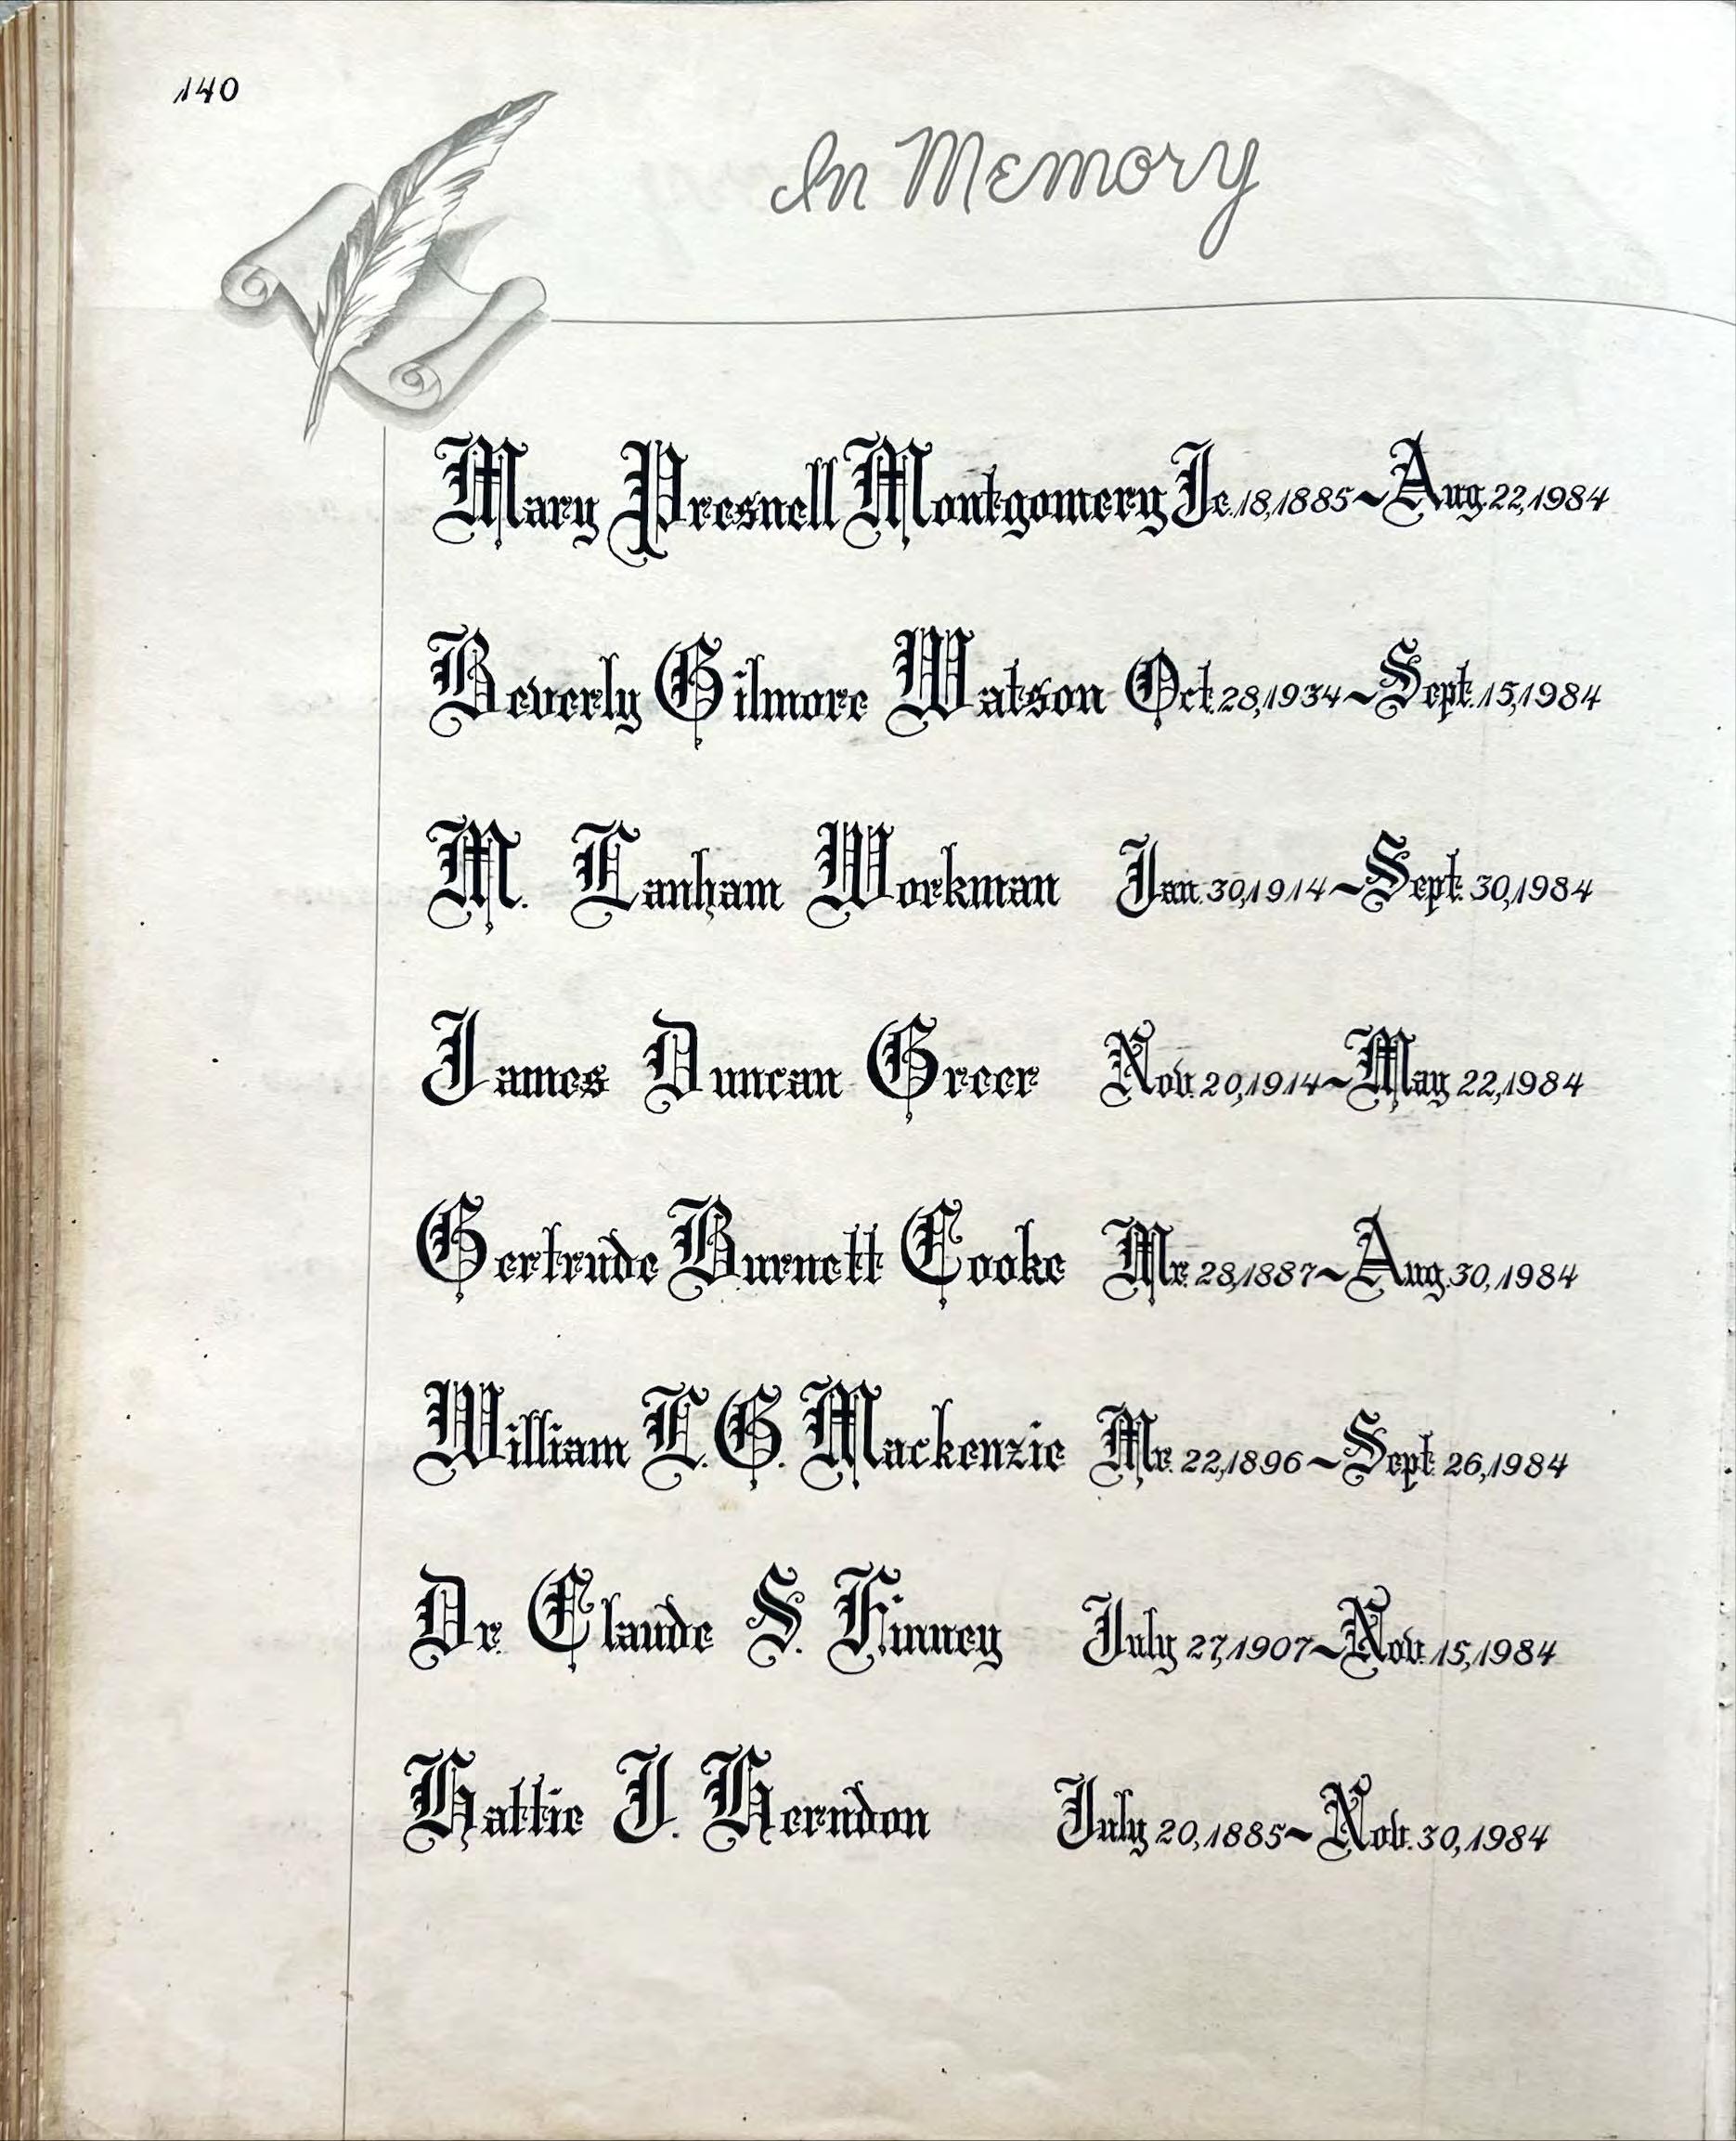 140
In Memory
Mary Presnell Montgomery Je. 18, 1885 ~ Aug. 22, 1984
Beverly Gilmore Watson Oct. 28, 1934 ~ Sept. 15, 1984
M. Lanham Workman Jan. 30, 1914 ~ Sept. 30, 1984
James Duncan Greer Nov. 20, 1914 ~ May 22, 1984
Gertrude Burnett Cooke Mr. 28, 1887 ~ Aug. 30, 1984
William L. G. Mackenzie Mr. 22, 1896 ~ Sept. 26, 1984
Dr. Claude S. Finney July 27, 1907 ~ Nov. 15, 1984
Hattie J. Herndon July 20, 1885 ~ Nov. 30, 1984